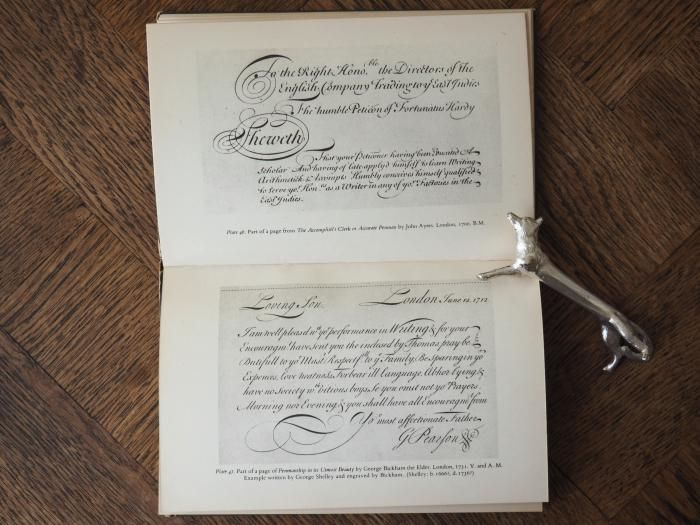 To the Right Hono.ble the Directors of the
English Company Trading to yͤ East Indies
The humble Peticon of Fortunatus Hardy
Sheweth
That your Peticoner having been Educated A
Scholar And having of late applyd himself to learn Writing
Arithmetick & Accompts Humbly conceives himself qualified
to serve yoͬ. Honͬˢ as a Writer in any of yoͬ Factories in the
East Indies.
Plate 46. Part of a page from The Accomplish't Clerk or Accurate Penman by John Ayres. London, 1700. B.M.
Loving Son. London June 12. 1712
I am well pleased wͭͪ yoͬ performance in Writing & for your
Encouragmͭ have sent you the inclosed by Thomas, pray be
Dutifull to yoͬ Mastͬ Respectfˡˡ to yͤ Family, Be Sparing in yoͬ
Expences, love neatness, Forbear ill Language, Abhor Lying &
have no Society wͭͪ vitious boys, So you omit not yoͬ Prayers
Morning nor Evening & you shall have all Encouragmͭ from
Yoͬ most affectionate Father
G Pearson
Plate 47. Part of a page of Penmanship in its Utmost Beauty by George Bickham the Elder. London, 1731. V. and A. M.
Example written by George Shelley and engraved by Bickham. (Shelley: b. 1666?, d. 1736?)